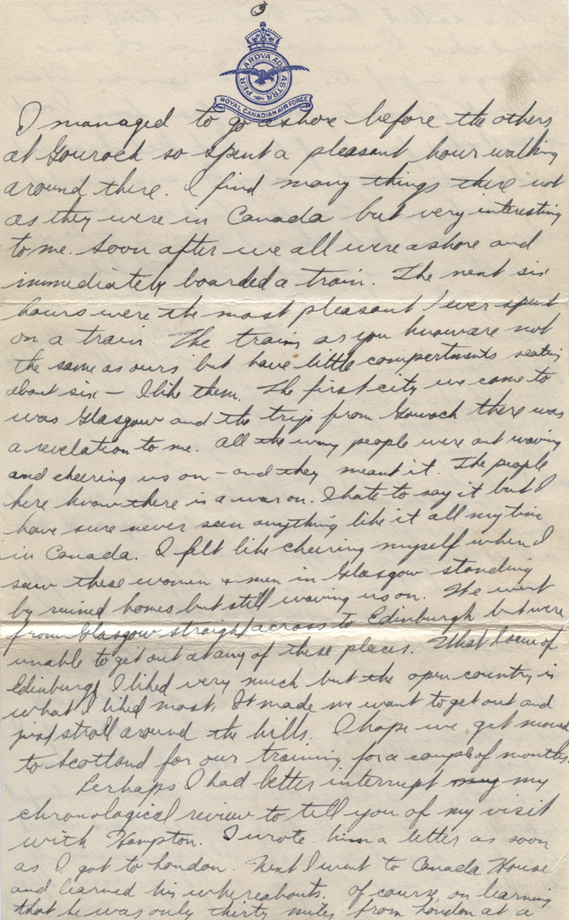 PER ARDVA AD ASTRA
ROYAL CANADIAN AIR FORCE
I managed to go ashore before the others
at Gourock so spent a pleasant hour walking
around there. I find many things there not
as they were in Canada but very interesting
to me. Soon after we all were ashore and
immediately boarded a train. The next six
hours were the most pleasant I ever spent
on a train. The trains as you know are not
the same as ours but have little compertments seating
about six – I like them. The first city we came to
was Glasgow and the trip from Gourock there was
a revelation to me. All the way people were out waving
and cheering us on – and they meant it. The people
here know there is a war on. I hate to say it but I
have sure never seen anything like it all my time
in Canada. I felt like cheering myself when I
saw these women & men in Glasgow standing
by ruined homes but still waving us on. We went
from Glasgow straight across to Edinburgh but were
unable to get out at any of these places. What I seen of
Edinburgh I liked very much but the open country is
what I liked most. It made me want to get out and
just stroll around the hills. I hope we get moved
to Scotland for our training, for a couple of months.
Perhaps I had better interrupt my
chronological review to tell you of my visit
with Hampton. I wrote him a letter as soon
as I got to London. Next I went to Canada House
and learned his whereabouts. Of course, on learning
that he was only thirty miles from London and a